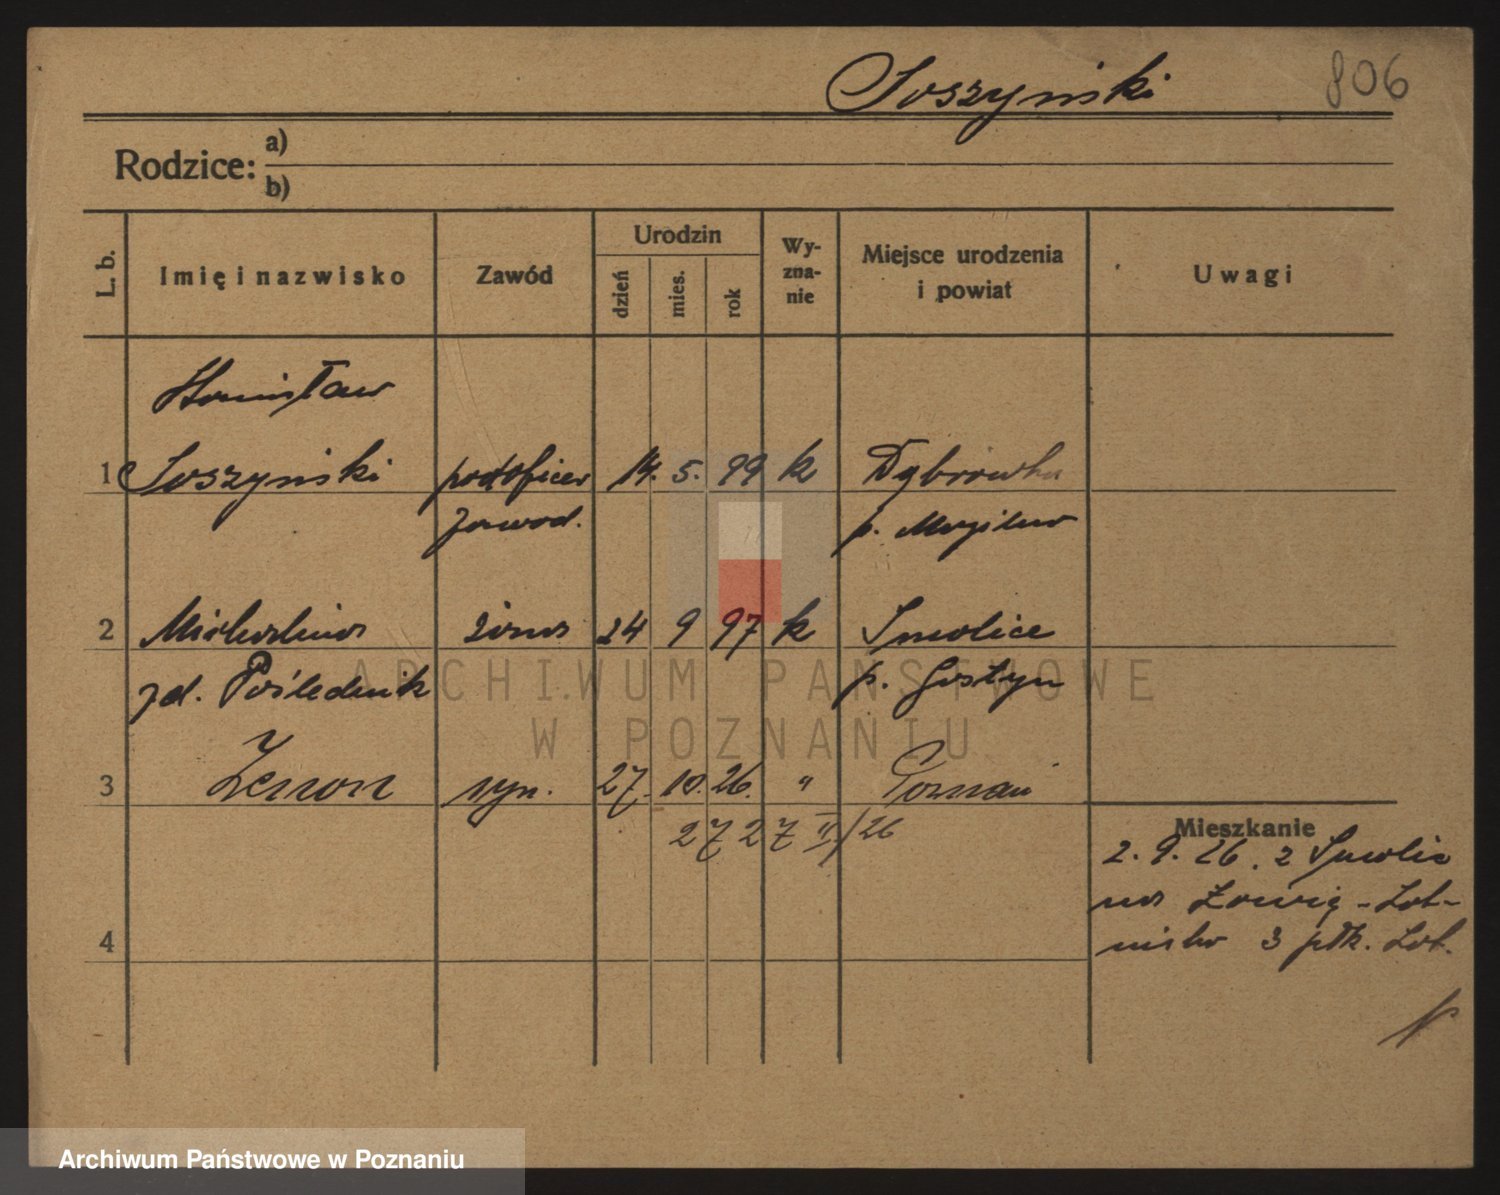 Soszyński 806
Rodzice: a)
b)
L. b. Imię i nazwisko Zawód Urodzin dzień mies. rok Wy-zna-nie Miejsce urodzenia i powiat Uwagi
Stanisław
1 Soszyński podoficer 14. 5. 99 k Dąbrówka
zawod. p. Mogilno
2 żona 24 9 97 k Smolice
zd. Poślednik p. Gostyn
3 Zenon syn. 27. 10. 26. " Poznań
27 27 II/26
Mieszkanie
2. 9. 26. z Smolic
na Ławicę - Lot-
4 nisko 3 płk. Lot.
ARCHIWUM PAŃSTWOWE
W POZNANIU
Archiwum Państwowe w Poznaniu